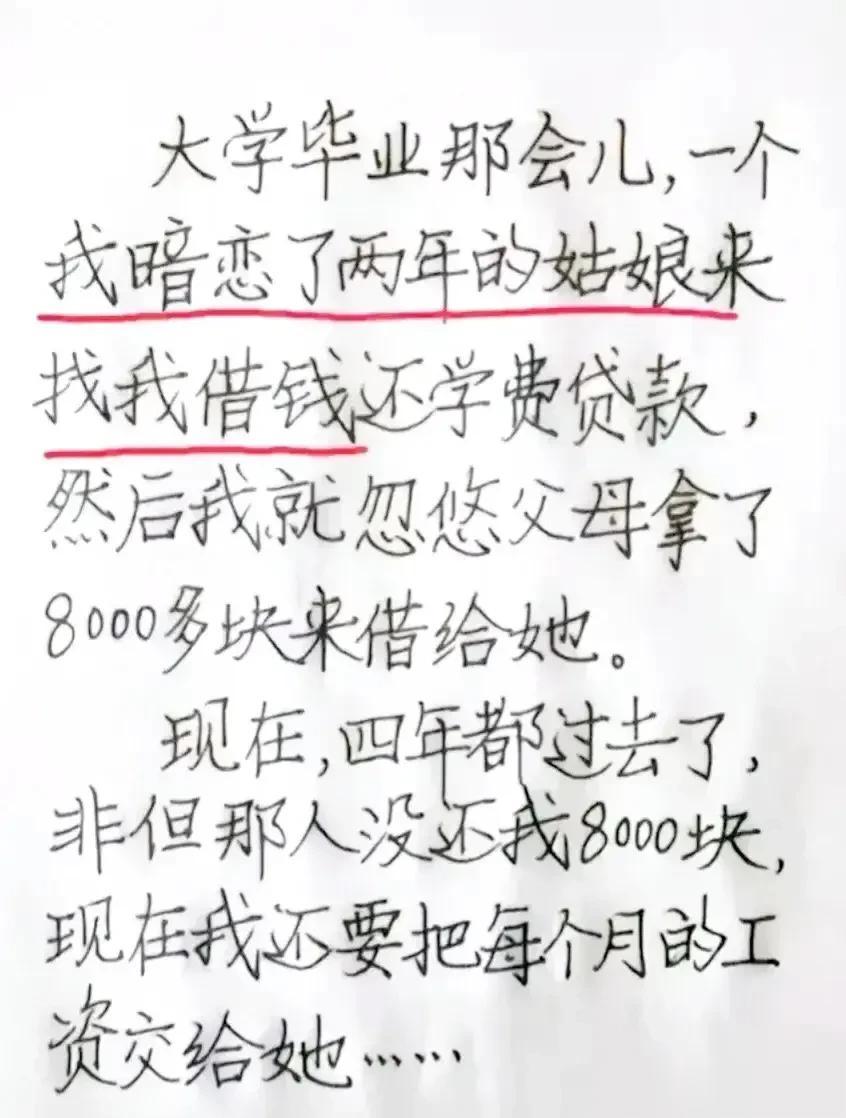 大学毕业那会儿,一个
我暗恋了两年的姑娘来
找我借钱还学费贷款,
然后我就忽悠父母拿了
8000多块来借给她。
现在,四年都过去了,
非但那人没还我8000块,
现在我还要把每个月的工
资交给她……